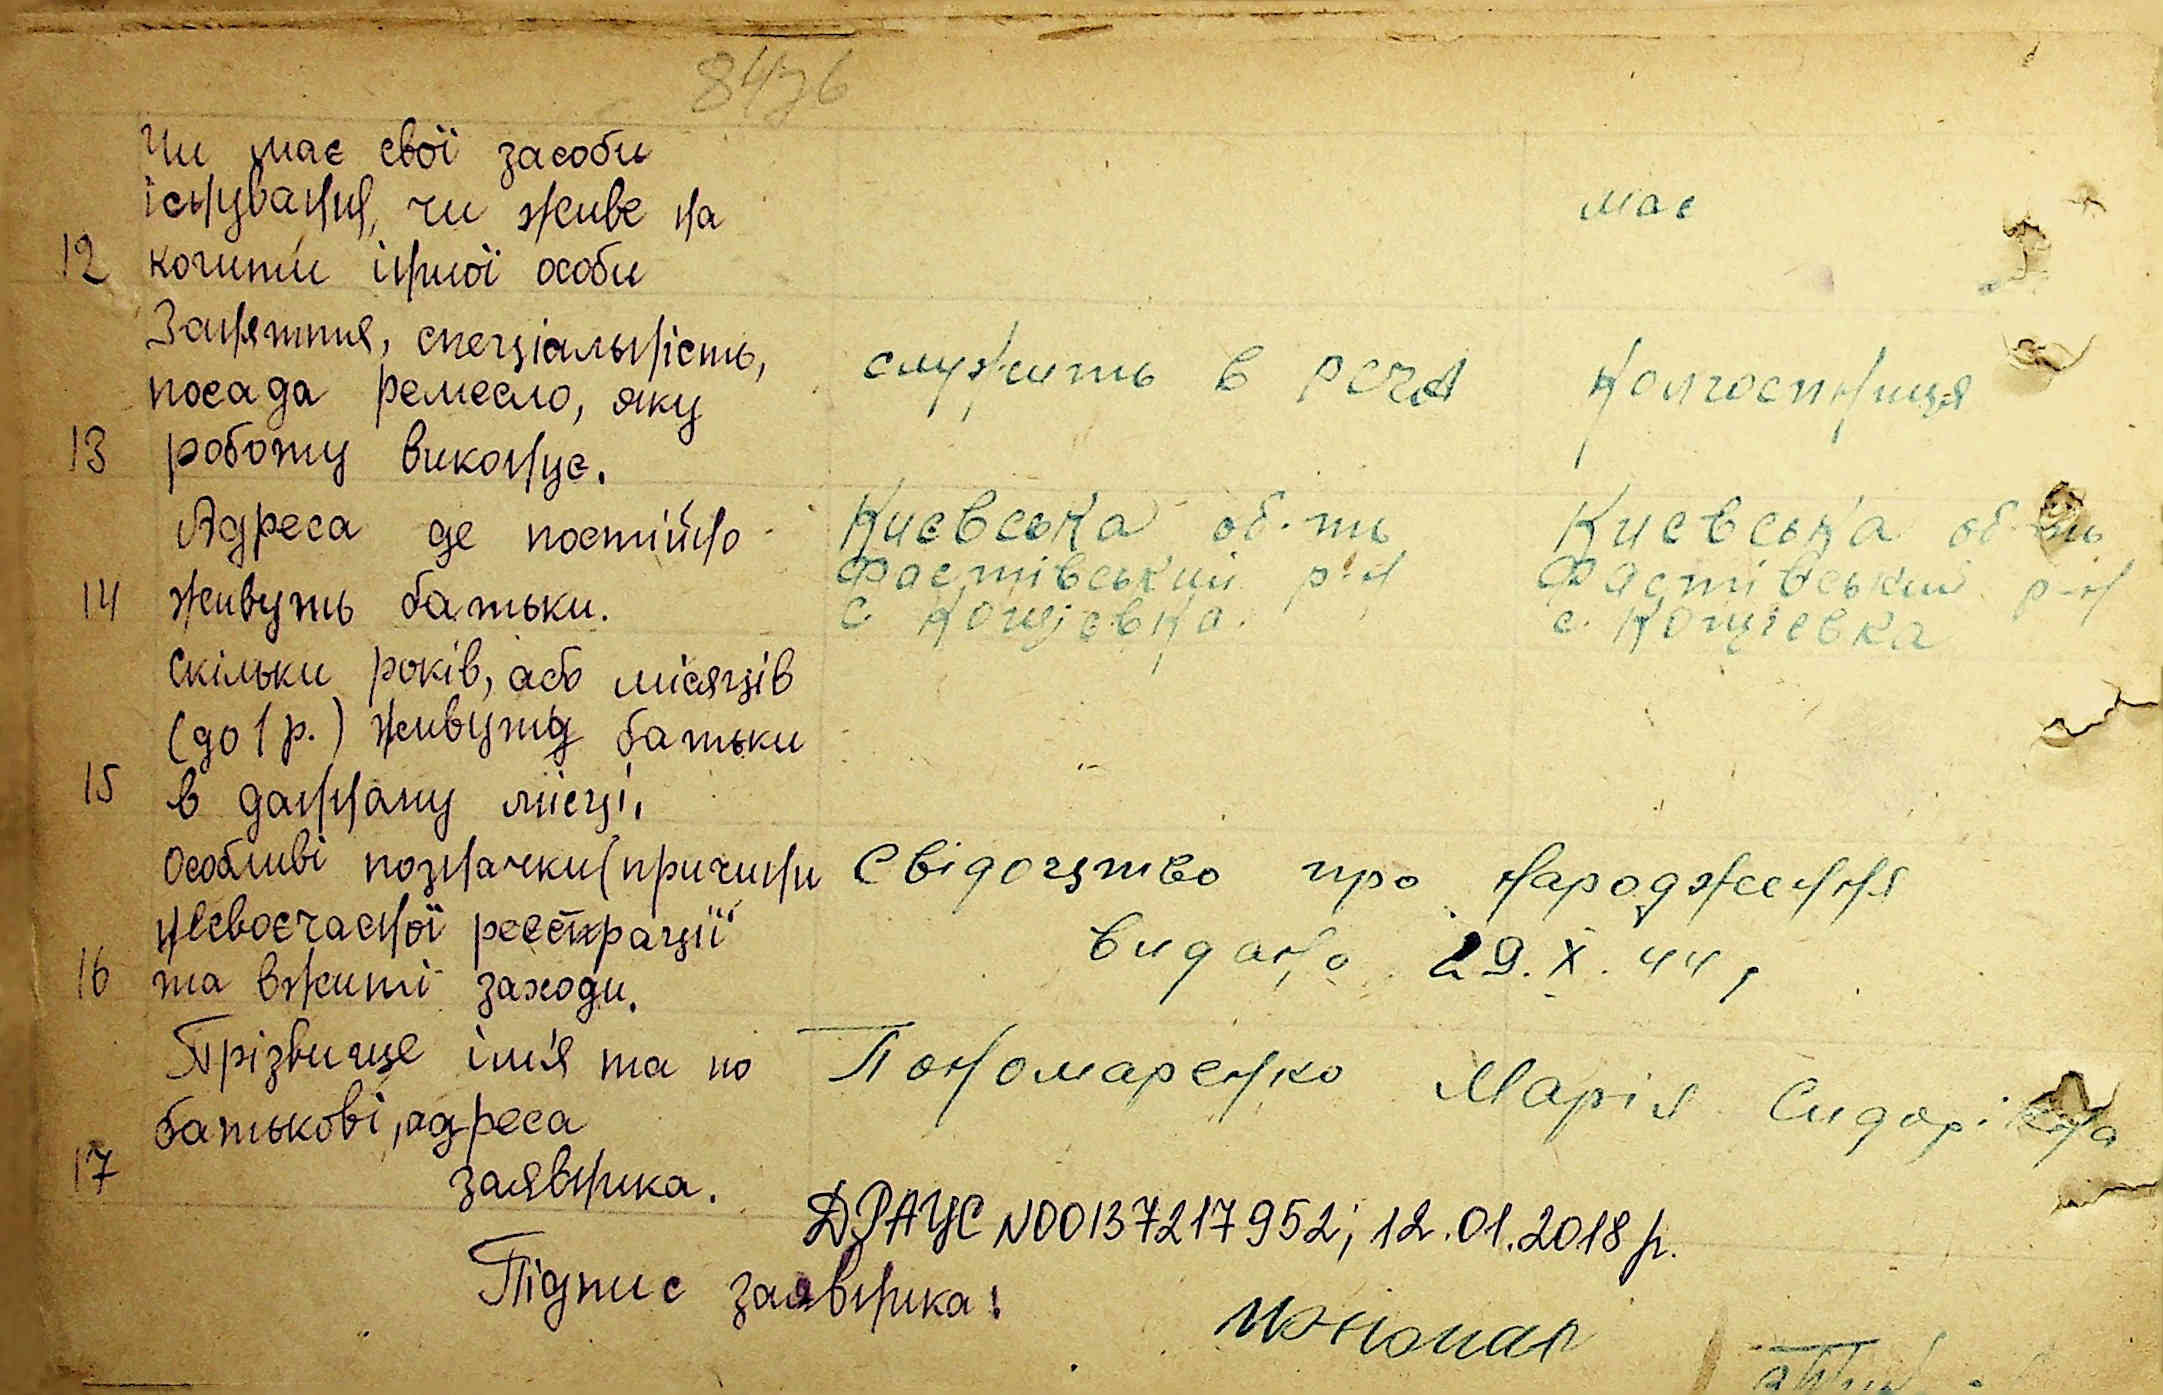 Чи має свої засоби
існування, чи живе на
має
12 кошти іншої особи
Заняття, спеціальність,
служить в РСЧА Колгоспниця
посада ремесло, яку
13 роботу виконує.
Киевська об-ть Киевська об-ть
Адреса де постійно
Фастівський р-н Фастівський р-н
14 живуть батьки.
с Кощіевка. с. Кощіевка
Скільки років, або місяців
(до 1 р.) живуть батьки
15 в данному місці.
Особливі позначки (причини
Свідоцтво про народження
несвоєчасної реєстрації
видано 29.X.44,
16 та вжиті заходи.
Прізвище ім'я та по
Пономаренко Марія Сидорівна
батькові, адреса
17 заявника.
ДРАЦС N00137217952; 12.01.2018 р.
Підпис заявника: